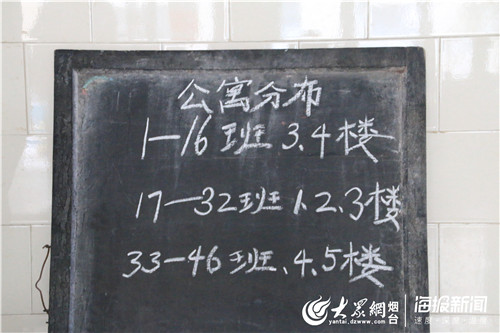 公寓分布
1—16班 3.4楼
17—32班 1.2.3楼
33—46班.4.5楼
大众網 烟台
yantai.dzwww.com
海报新闻